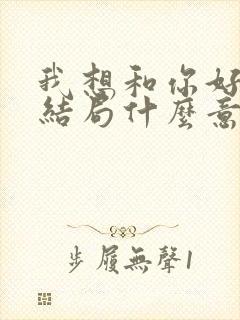 我想和你好
結局什麼意
步履無聲1